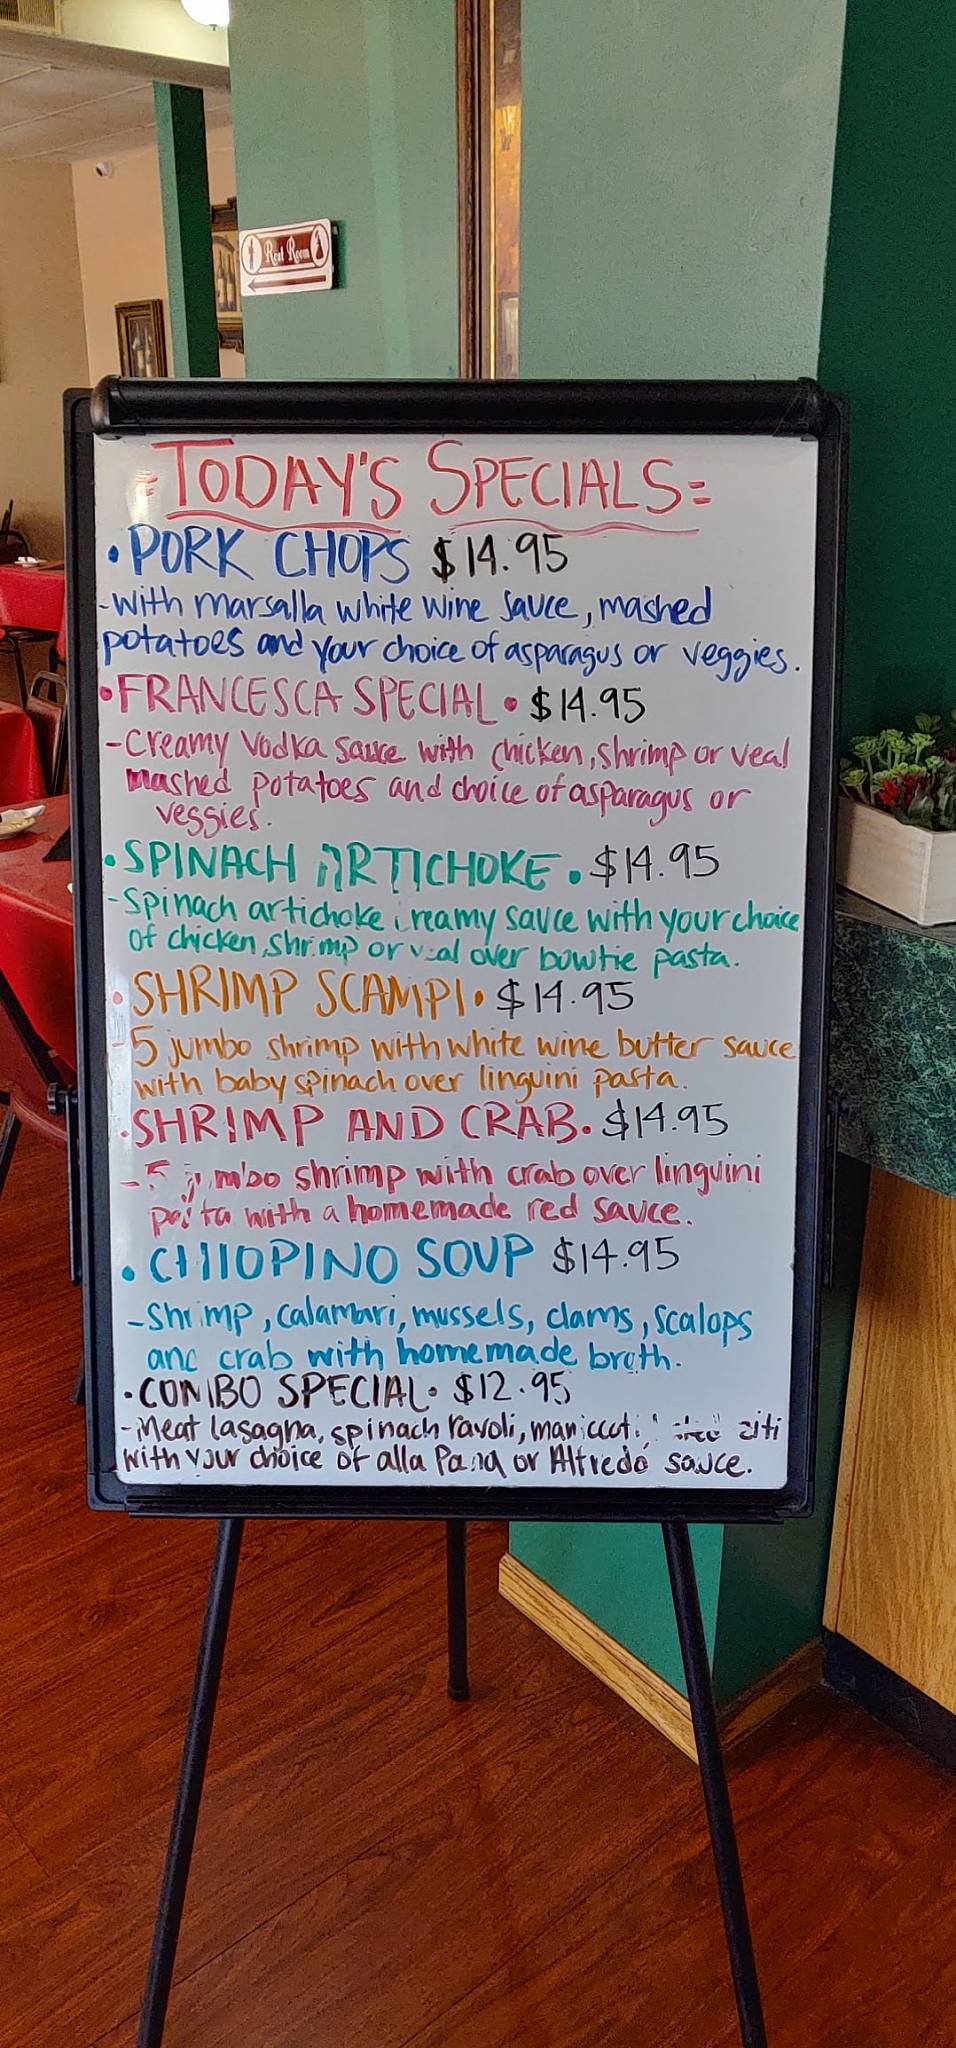 Rest Room
=TODAY'S SPECIALS=
• PORK CHOPS $14.95
-with marsalla white wine sauce, mashed
potatoes and your choice of asparagus or veggies.
• FRANCESCA SPECIAL • $14.95
-Creamy Vodka sauce with chicken, shrimp or veal
mashed potatoes and choice of asparagus or
veggies.
• SPINACH ARTICHOKE • $14.95
-Spinach artichoke creamy sauce with your choice
of chicken, shrimp or veal over bowtie pasta.
• SHRIMP SCAMPI • $14.95
-5 jumbo shrimp with white wine butter sauce
with baby spinach over linguini pasta.
• SHRIMP AND CRAB. $14.95
-5 jumbo shrimp with crab over linguini
pasta with a homemade red sauce.
• CHIOPINO SOUP $14.95
-Shrimp, calamari, mussels, clams, scalops
and crab with homemade broth.
• COMBO SPECIAL • $12.95
-Meat lasagna, spinach ravoli, maniccoti, ziti
with your choice of alla Pana or Alfredo sauce.